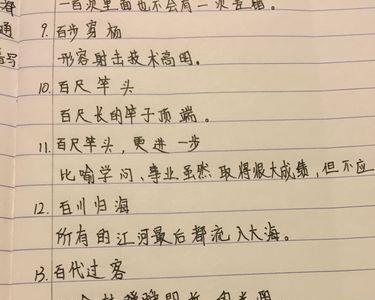 一百次里面也不会有一次差错。
9. 百步穿杨
形容射击技术高明。
10. 百尺竿头
百尺长的竿子顶端。
11. 百尺竿头，更进一步
比喻学问、事业虽然取得很大成绩，但不应
12. 百川归海
所有的江河最后都流入大海。
13. 百代过客